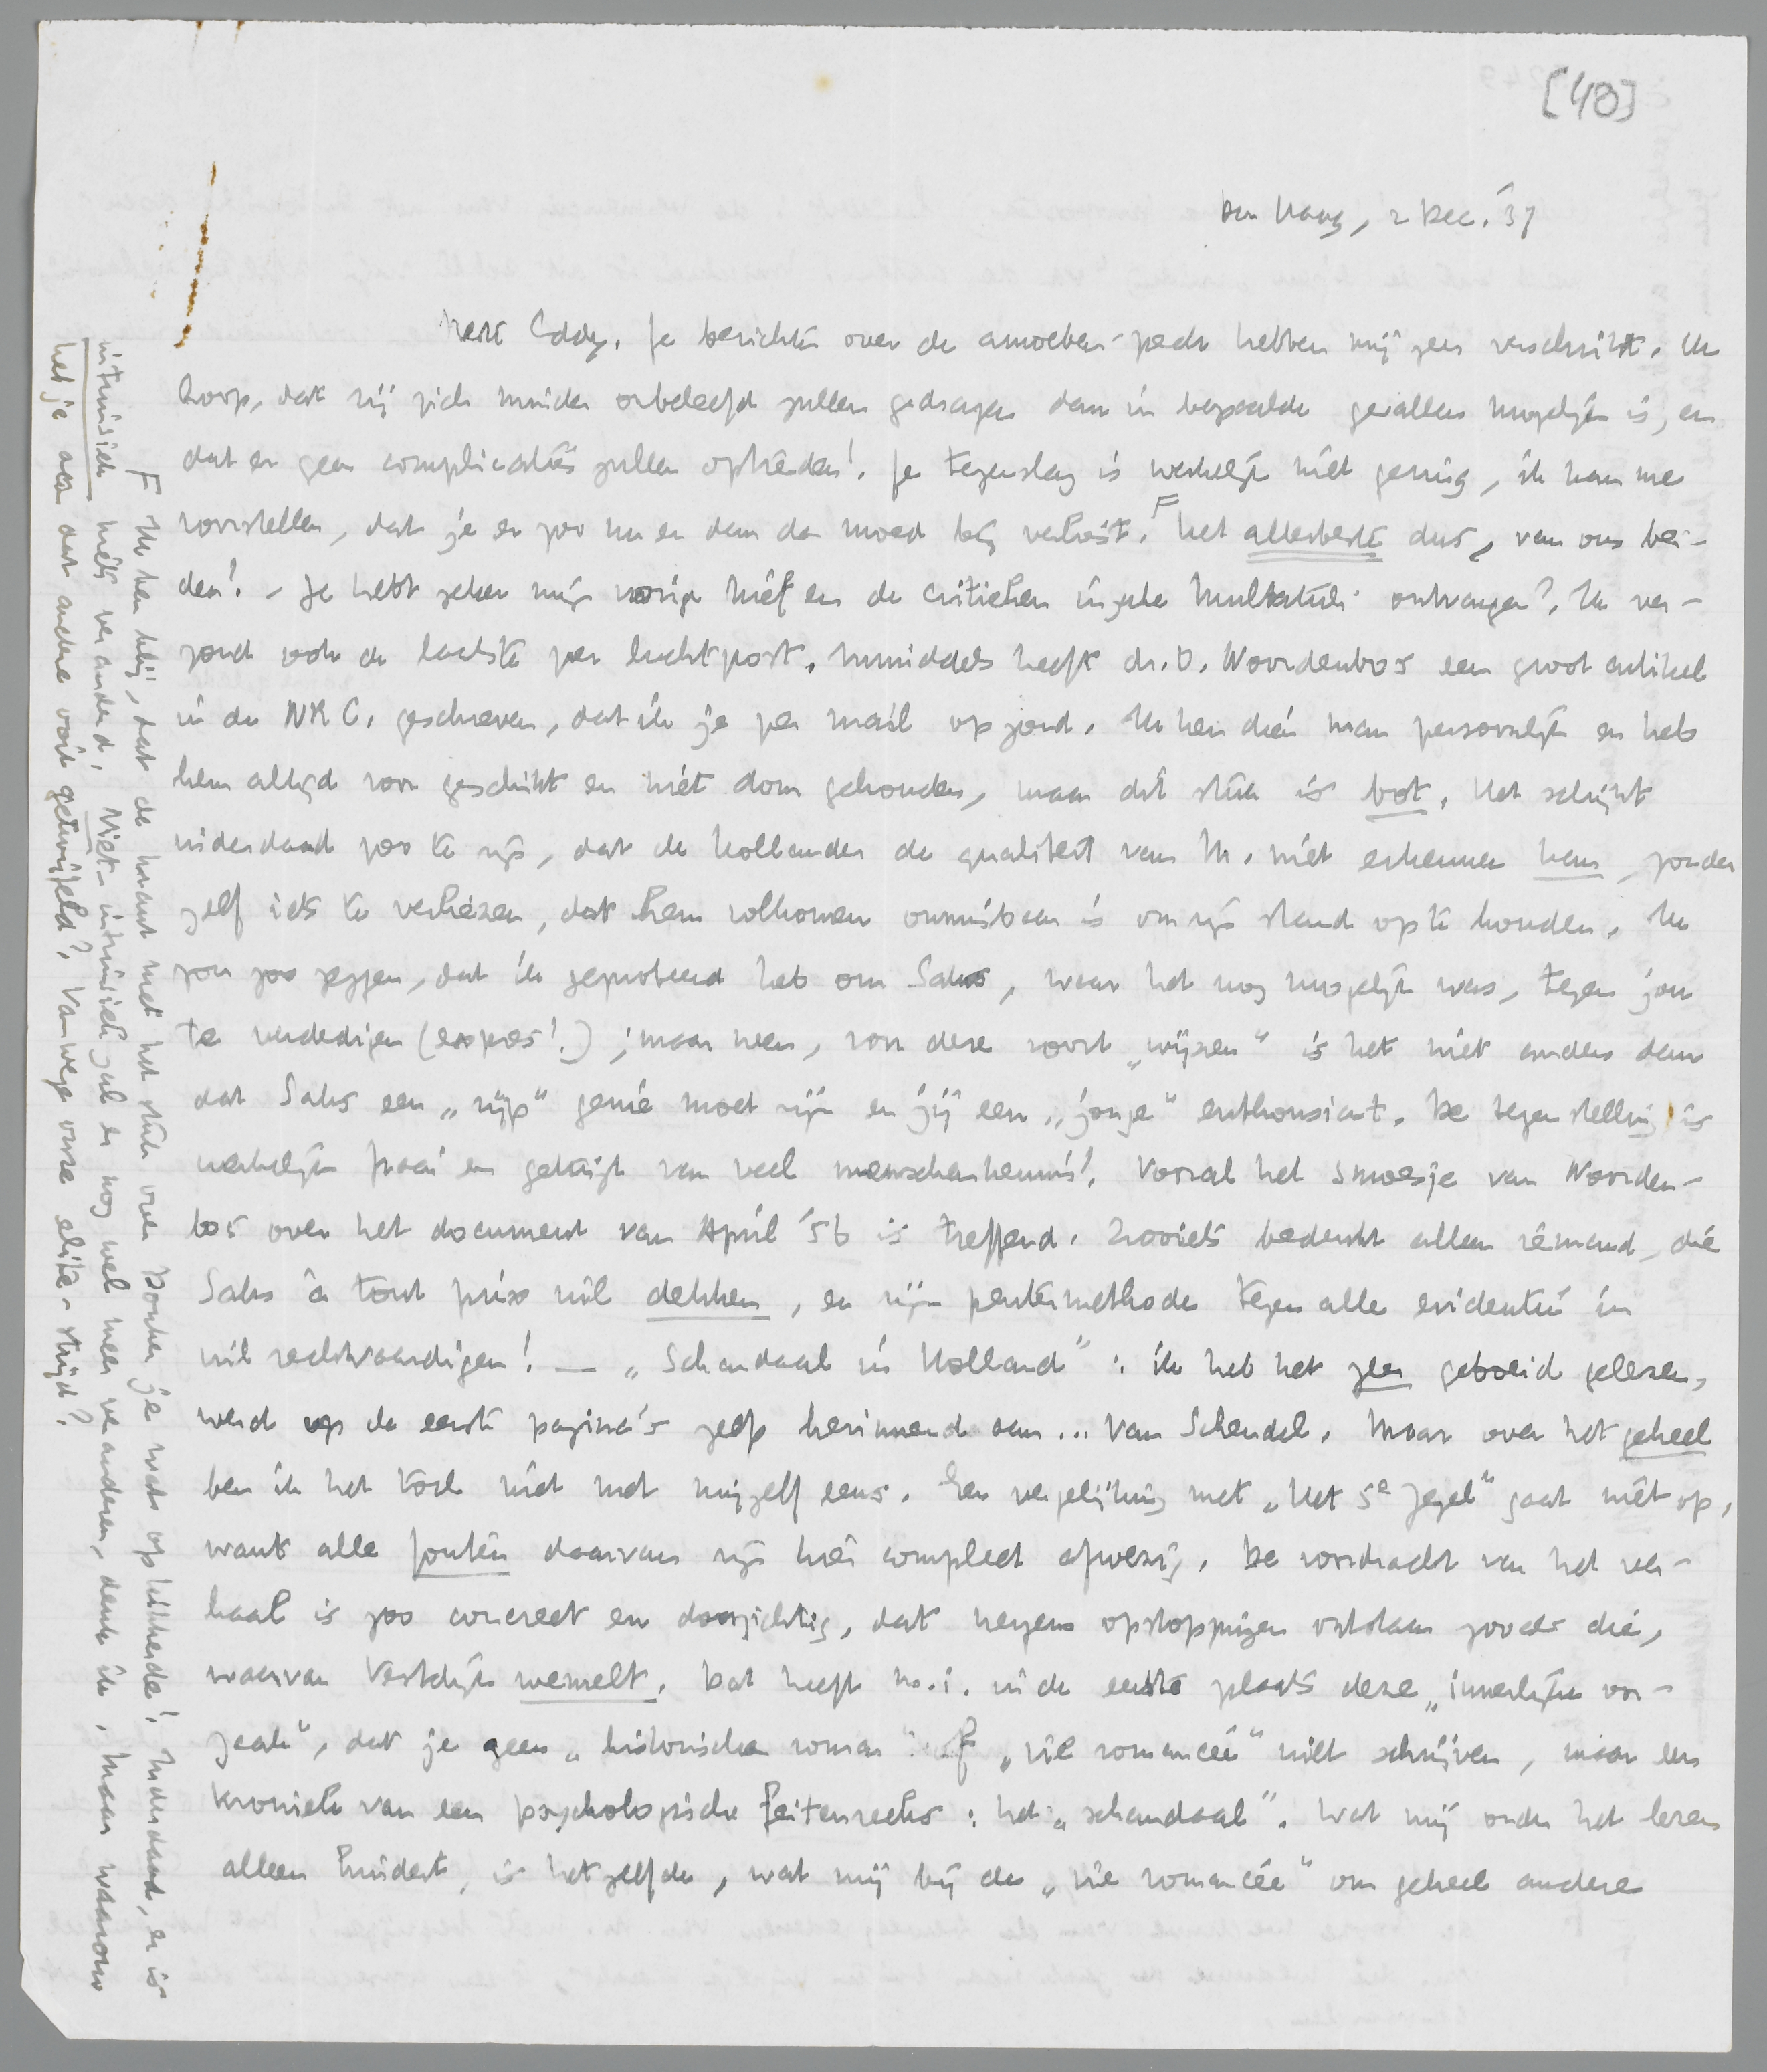 [48]
Den Haag, 2 Dec. '37
Beste Eddy. Je berichten over de amoeben-pech hebben mij zeer verschrikt. Ik
hoop, dat zij zich minder onbeleefd zullen gedragen dan in bepaalde gevallen mogelijk is, en
dat er geen complicaties zullen optreden! Je tegenslag is werkelijk niet gering, ik kan me
voorstellen, dat je er zoo nu en dan de moed bij verliest. F Het allerbeste dus, van ons bei-
den! - Je hebt zeker mijn vorige brief en de critieken inzake Multatuli ontvangen? Ik ver-
zond ook de laatste per luchtpost. Inmiddels heeft dr. O. Noordenbos een groot artikel
in de NRC. geschreven, dat ik je per mail op zond. Ik ken dien man persoonlijk en heb
hem altijd voor geschikt en niet dom gehouden, maar dit stuk is bot. Het schijnt
inderdaad zoo te zijn, dat de Hollander de qualiteit van M. niet erkennen kan, zonder
zelf iets te verliezen, dat hem volkomen onmisbaar is om zijn stand op te houden. Ik
zou zoo zeggen, dat ik geprobeerd heb om Saks, waar het nog mogelijk was, tegen jou
te verdedigen (expres!); maar neen, voor deze soort „wijzen" is het niet anders dan
dat Saks een „rijp" genie moet zijn en jij een „jonge" enthousiast. De tegenstelling is
werkelijk fraai en getuigt van veel menschenkennis! Vooral het smoesje van Noorden-
bos over het document van April '56 is treffend. Zooiets bedenkt alleen iemand, die
Saks à tout prix wil dekken, en zijn penter methode tegen alle evidentie in
wil rechtvaardigen! — „Schandaal in Holland": ik heb het zeer geboeid gelezen,
werd op de eerste pagina's zelfs herinnerd aan... Van Schendel. Maar over het geheel
ben ik het toch niet met mijzelf eens. Een vergelijking met „Het 5e Zegel" gaat niet op,
want alle fouten daarvan zijn hier compleet afwezig. De voordracht van het ver-
haal is zoo concreet en doorzichtig, dat nergens opstoppingen ontstaan zooals die,
waarvan Vestdijk wemelt. Dat heeft m.i. in de eerste plaats deze „innerlijke oor-
zaak", dat je geen „historische roman" of „vie romancée" wilt schrijven, maar een
kroniek van een psychologische feitenreeks: het „schandaal". Wat mij onder het lezen
alleen hindert, is hetzelfde, wat mij bij de „vie romancée" om geheel andere
F Ik ben blij, dat de krant met het stuk over Donker je wat opkikkerde! Inderdaad, er is
intrinsiek niets veranderd. Niet-intrinsiek zal er nog wel meer veranderen, denk ik, maar waarom
heb je aan dat andere ooit getwijfeld? Vanwege onze elite-strijd?